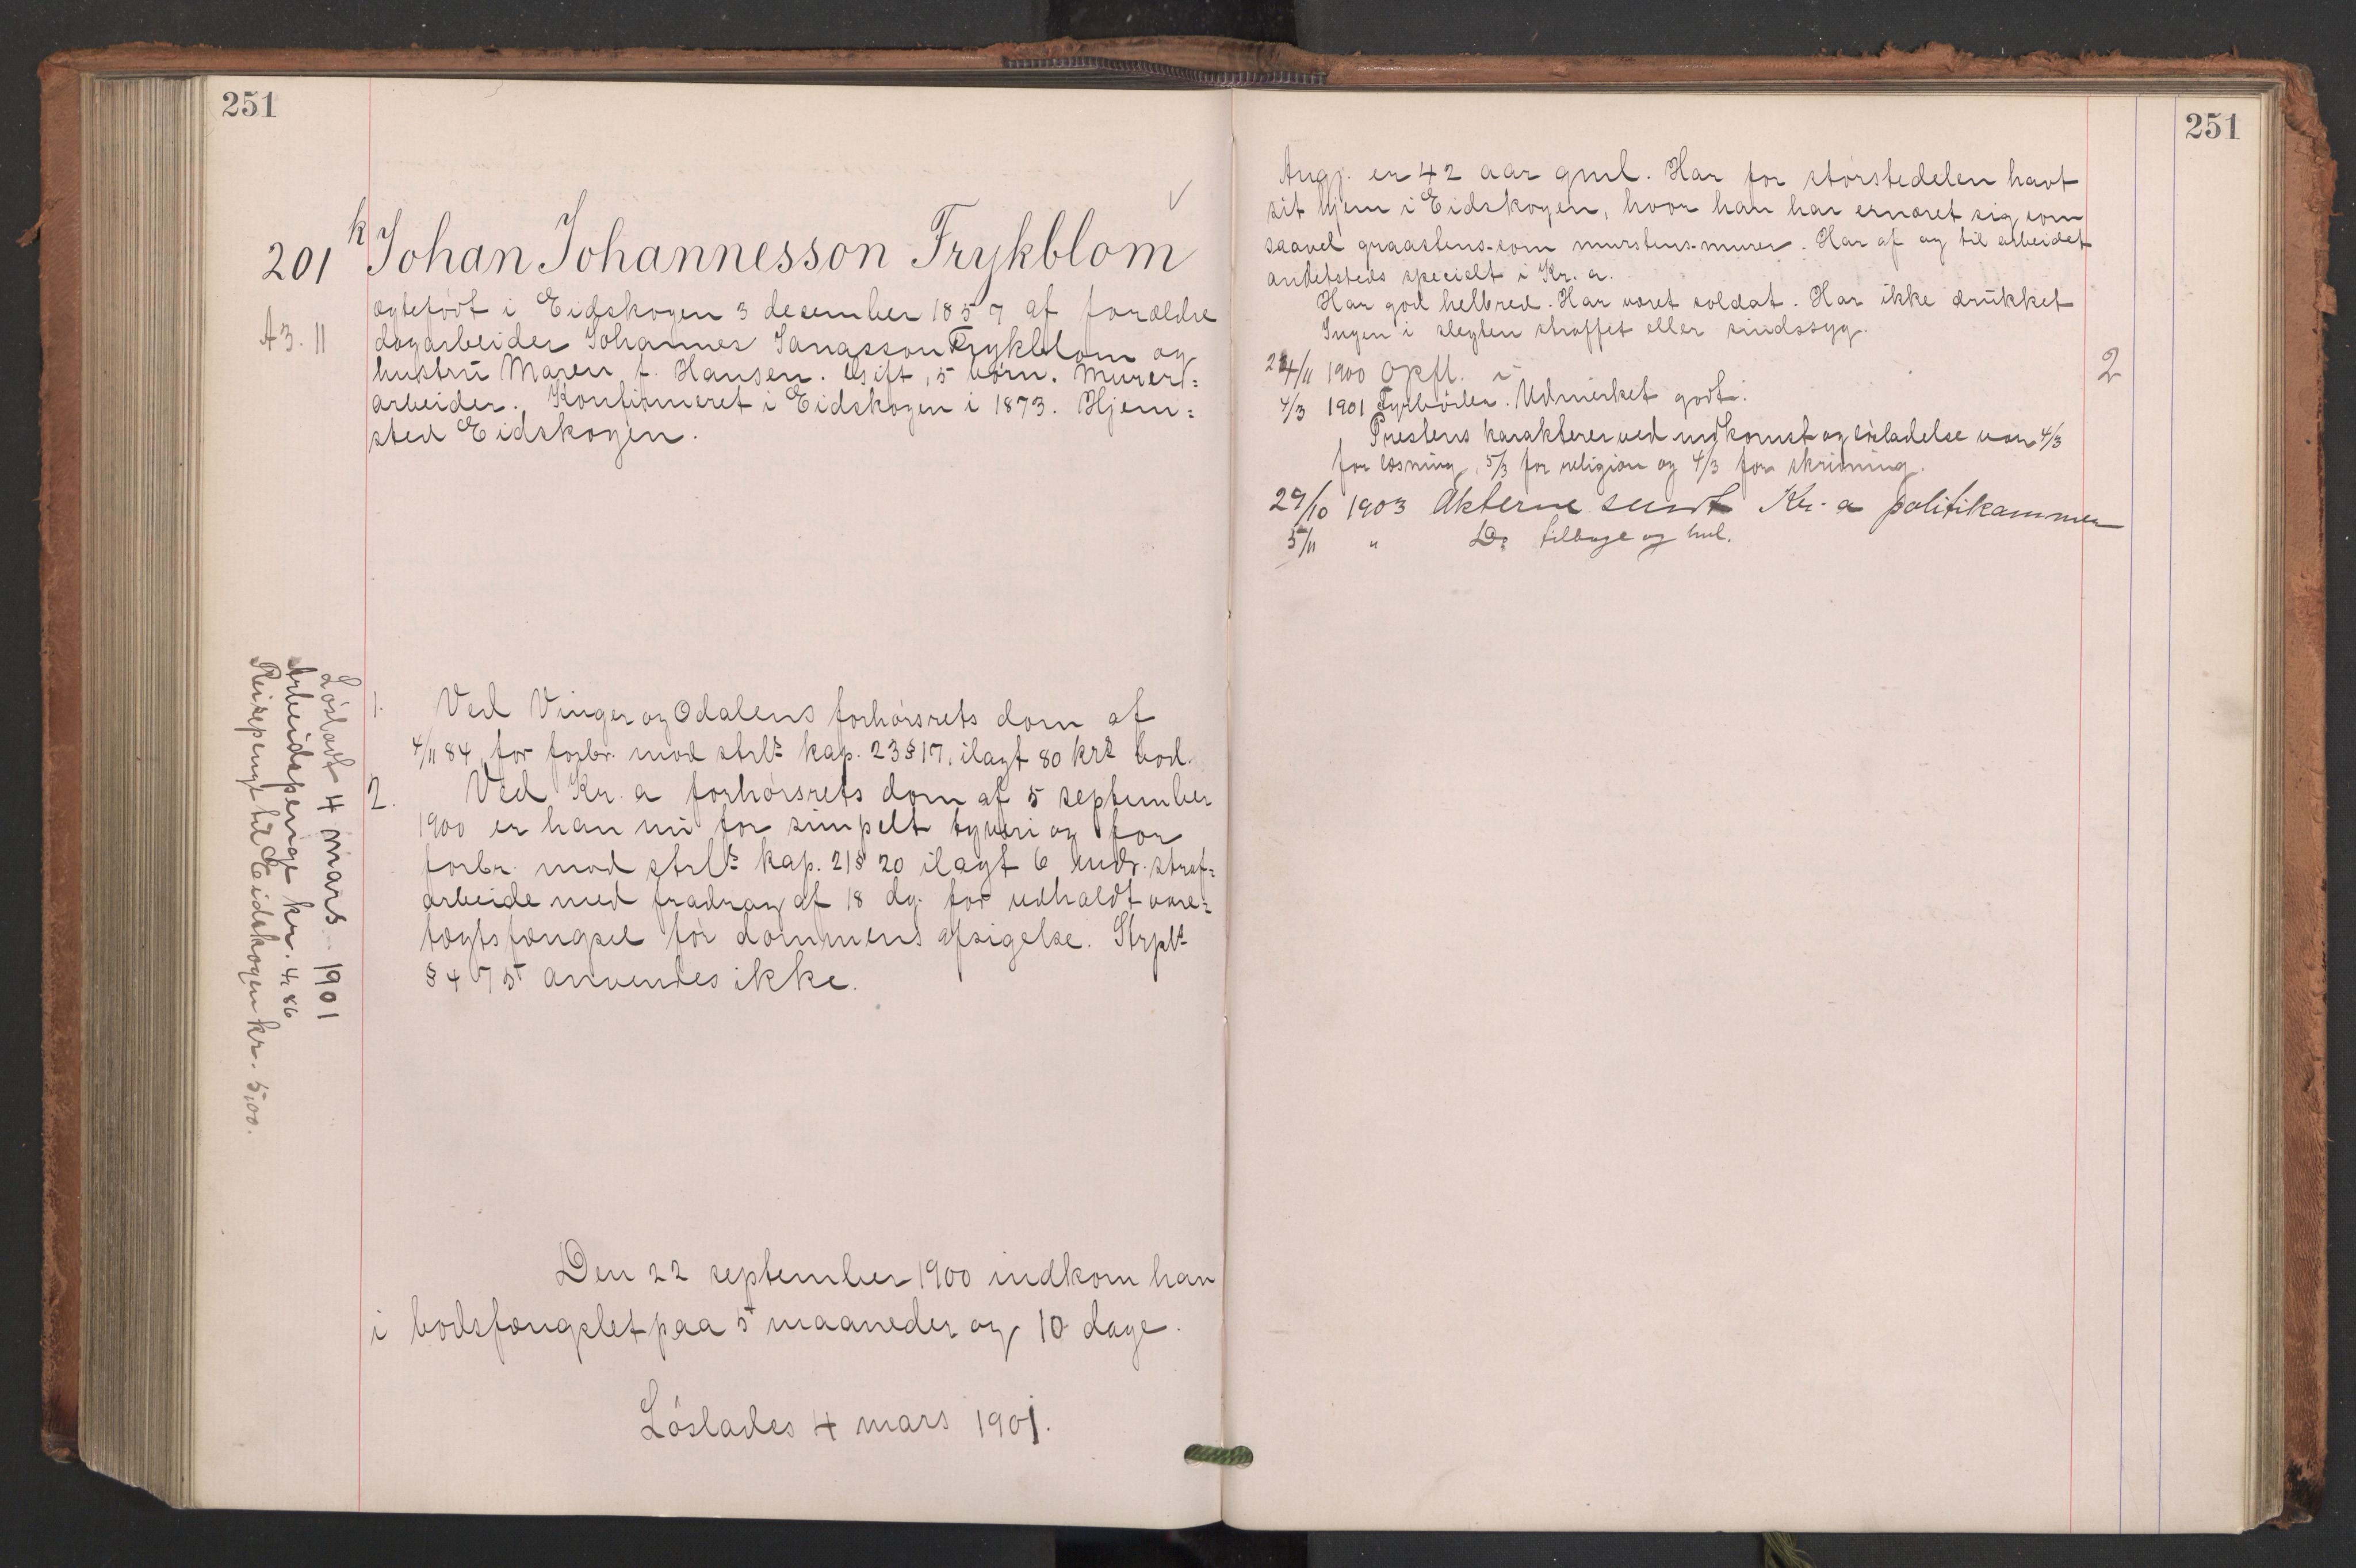 251
201
k
Johan Johannesson Frykblom
A3. 11
ægtefødt i Eidskogen 3 desember 1857 af forældre
dagarbeider Johannes Janasson Frykblom og
hustru Maren f. Hansen. Gift, 5 børn. Murer-
arbeider. Konfirmeret i Eidskogen i 1873. Hjem-
sted Eidskogen.
1. Ved Vinger og Odalens forhørsrets dom af
4/11 84, for forbr. mod strls kap. 23 § 17, ilagt 80 krs bod.
2. Ved Kr.a forhørsrets dom af 5 september
1900 er han nu for simpelt tyveri og for
forbr. mod strls kap. 21 § 20 ilagt 6 mdr. straf-
arbeide med fradrag af 18 dg. for udholdt vare-
tægtsfængsel før dommens afsigelse. Strpls
§ 475 anvendes ikke.
Løsladt 4 mars 1901
Arbeidspenge kr. 4,86
Reisepenge til Eidskogen kr. 5,00.
Den 22 september 1900 indkom han
i bodsfængslet paa 5 maaneder og 10 dage.
Løslades 4 mars 1901.
251
Angj. er 42 aar gml. Har for størstedelen havt
sit hjem i Eidskogen, hvor han har ernæret sig som
saavel graastens- som murstens-murer. Har af og til arbeidet
andetsteds specielt i Kr.a.
Har god helbred. Har været soldat. Har ikke drukket
Ingen i slegten straffet eller sindssyg.
24/11 1900 Opfl. i
2
4/3 1901 Fyrbøder. Udmerket godt.
Prestens karakterer ved indkomst og løsladelse var 4/3
for læsning, 5/3 for religion og 4/3 for skrivning.
29/10 1903 Akterne sendt Kr.a politikammer
5/11 " Do tilbage og hml.